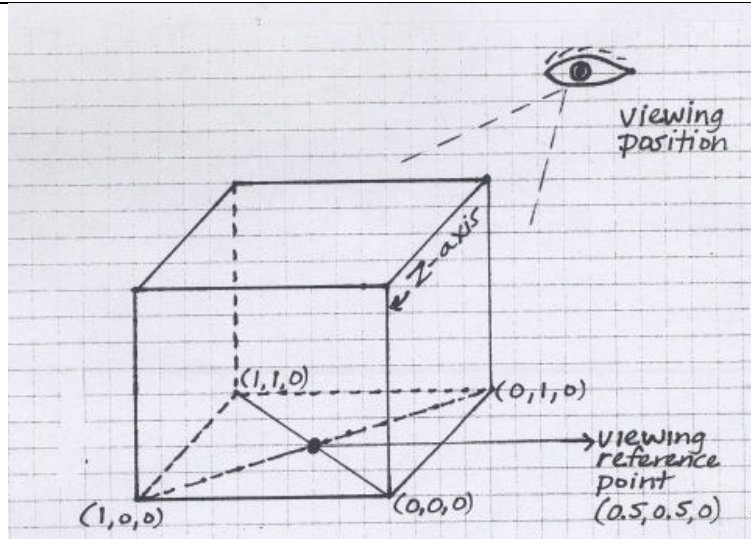 viewing
position
Z-axis
(1,1,0)
(0,1,0)
viewing
reference
point
(0.5,0.5,0)
(1,0,0)
(0,0,0)